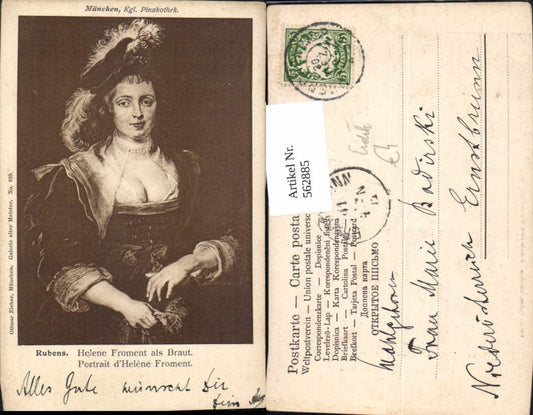 München, Kgl. Pinakothek.
Ottmar Zieher, München. Galerie alter Meister. No. 139.
Rubens. Helene Froment als Braut.
Portrait d'Helène Froment.
Alles Gute wünscht Dir
Dein
Artikel Nr.
562885
Postkarte — Carte postale
Weltpostverein — Union postale universelle
Correspondenzkarte — Dopisnice
Levelező-Lap — Korespondenční lístek
Dopisnica — Karta Korespondencyjna
Briefkaart — Cartolina Postale
Brefkort — Tarjeta Postal — Postcard
Дописна карта
ОТКРЫТОЕ ПИСЬМО
Frau Marie
Niederösterreich Ernstbrunn